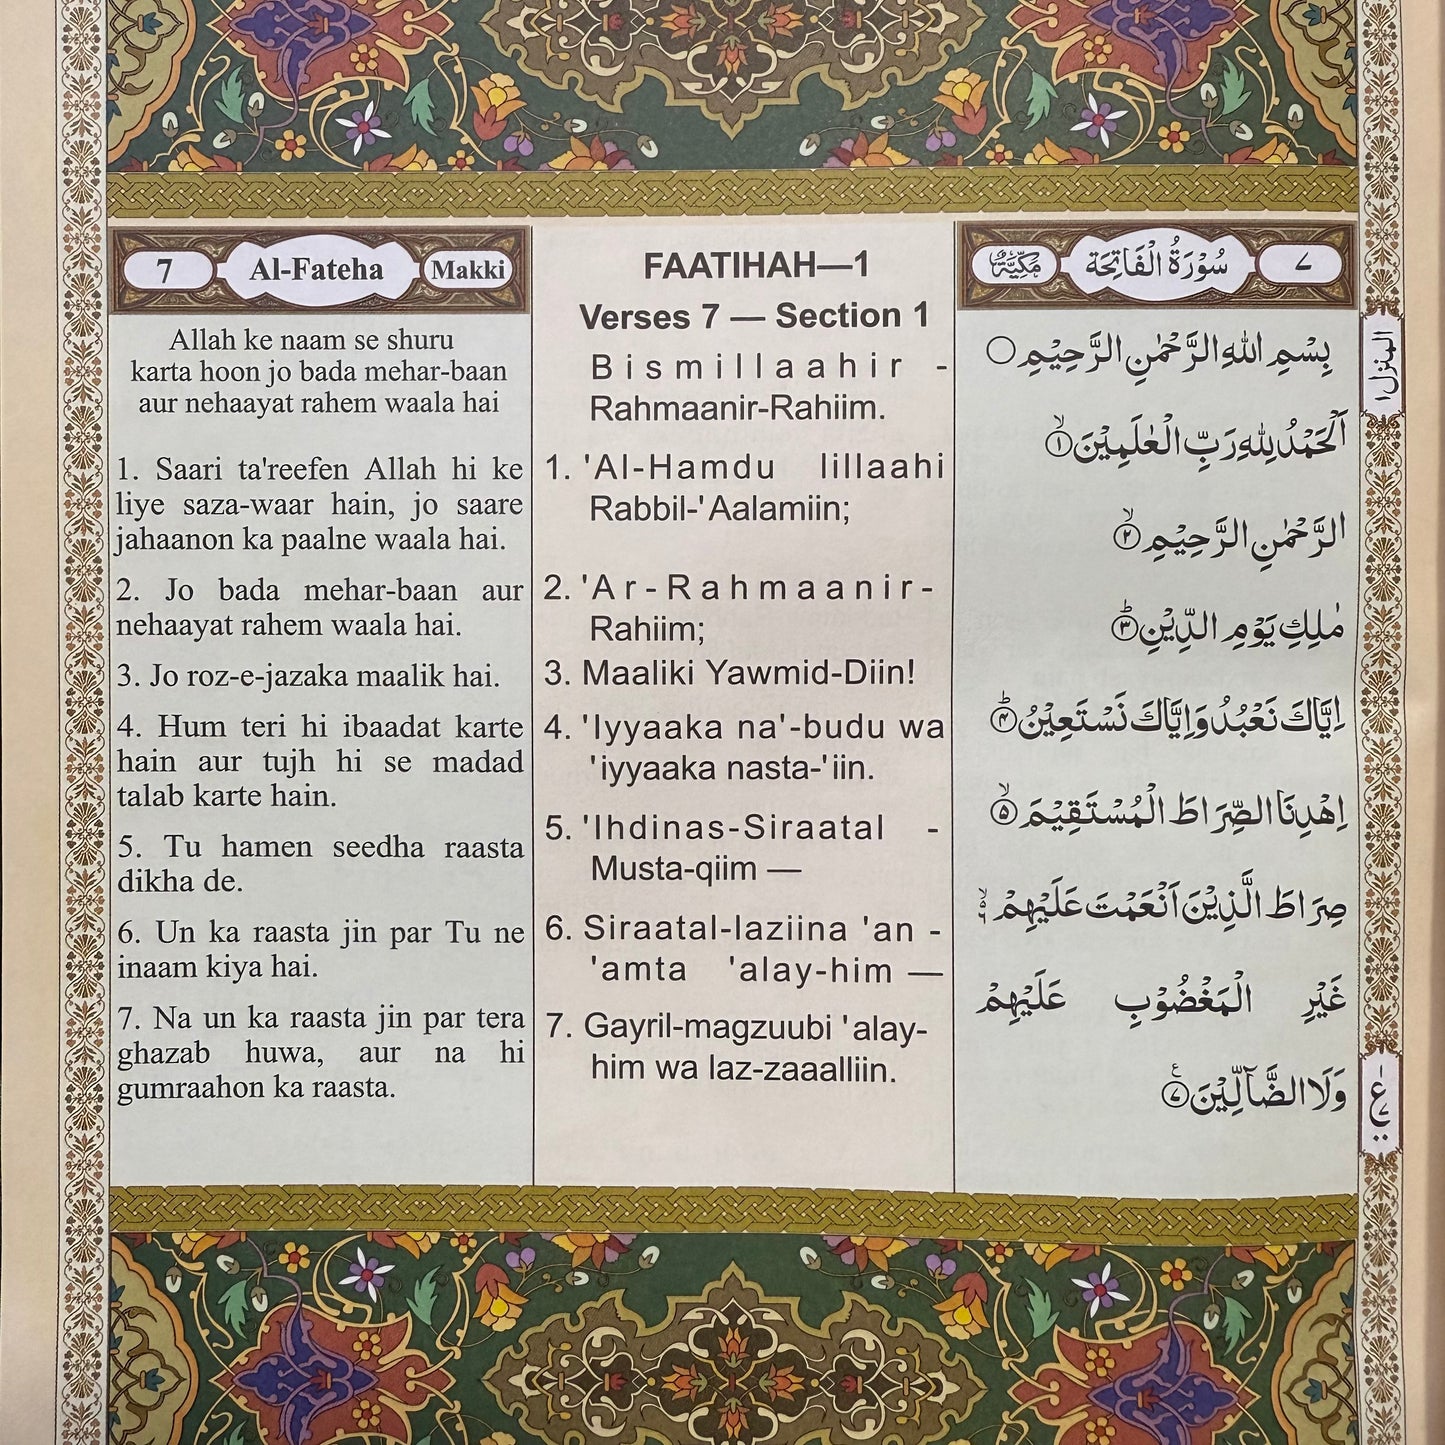 7 Al-Fateha Makki
Allah ke naam se shuru
karta hoon jo bada mehar-baan
aur nehaayat rahem waala hai
1. Saari ta'reefen Allah hi ke
liye saza-waar hain, jo saare
jahaanon ka paalne waala hai.
2. Jo bada mehar-baan aur
nehaayat rahem waala hai.
3. Jo roz-e-jazaka maalik hai.
4. Hum teri hi ibaadat karte
hain aur tujh hi se madad
talab karte hain.
5. Tu hamen seedha raasta
dikha de.
6. Un ka raasta jin par Tu ne
inaam kiya hai.
7. Na un ka raasta jin par tera
ghazab huwa, aur na hi
gumraahon ka raasta.
FAATIHAH—1
Verses 7 — Section 1
Bismillaahir -
Rahmaanir-Rahiim.
1. 'Al-Hamdu lillaahi
Rabbil-'Aalamiin;
2. 'Ar-Rahmaanir-
Rahiim;
3. Maaliki Yawmid-Diin!
4. 'Iyyaaka na'-budu wa
'iyyaaka nasta-'iin.
5. 'Ihdinas-Siraatal -
Musta-qiim —
6. Siraatal-laziina 'an -
'amta 'alay-him —
7. Gayril-magzuubi 'alay-
him wa laz-zaaalliin.
٧ سُوْرَةُ الْفَاتِحَة مَكِّيَّةٌ
بِسْمِ اللهِ الرَّحْمٰنِ الرَّحِيْمِ ○
اَلْحَمْدُ لِلّٰهِ رَبِّ الْعٰلَمِيْنَ ۙ﴿۱﴾
الرَّحْمٰنِ الرَّحِيْمِ ۙ﴿۲﴾
مٰلِكِ يَوْمِ الدِّيْنِ ؕ﴿۳﴾
اِيَّاكَ نَعْبُدُ وَاِيَّاكَ نَسْتَعِيْنُ ؕ﴿۴﴾
اِهْدِنَا الصِّرَاطَ الْمُسْتَقِيْمَ ۙ﴿۵﴾
صِرَاطَ الَّذِيْنَ اَنْعَمْتَ عَلَيْهِمْ ۙ۶
غَيْرِ الْمَغْضُوْبِ عَلَيْهِمْ
وَلَا الضَّآلِّيْنَ ﴿۷﴾
المنزل ۱
ع
۷